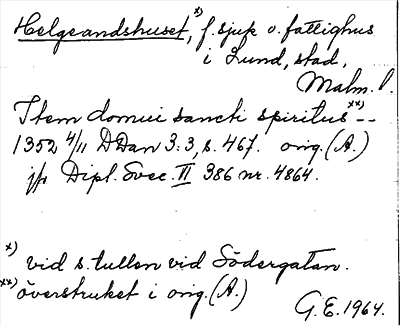 Helgeandshuset, x) f. sjuk o. fattighus
i Lund, stad,
Malm. l.
Item domui sancti spiritus xx) --
1352 4/11 DDan 3:3, s. 467. orig. (A.)
jfr Dipl. Svec. VI 386 nr. 4864.
x) vid s. tullen vid Södergatan.
xx) överstruket i orig. (A.)
G.E. 1964.